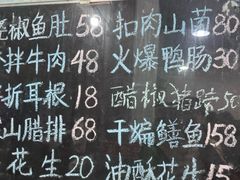 椒鱼肚 58 扣肉山菌 80
拌牛肉 48 火爆鸭肠 30
折耳根 18 醋椒猪 50
山腊排 68 干煸鳝鱼 158
花生 20 油酥花生 15